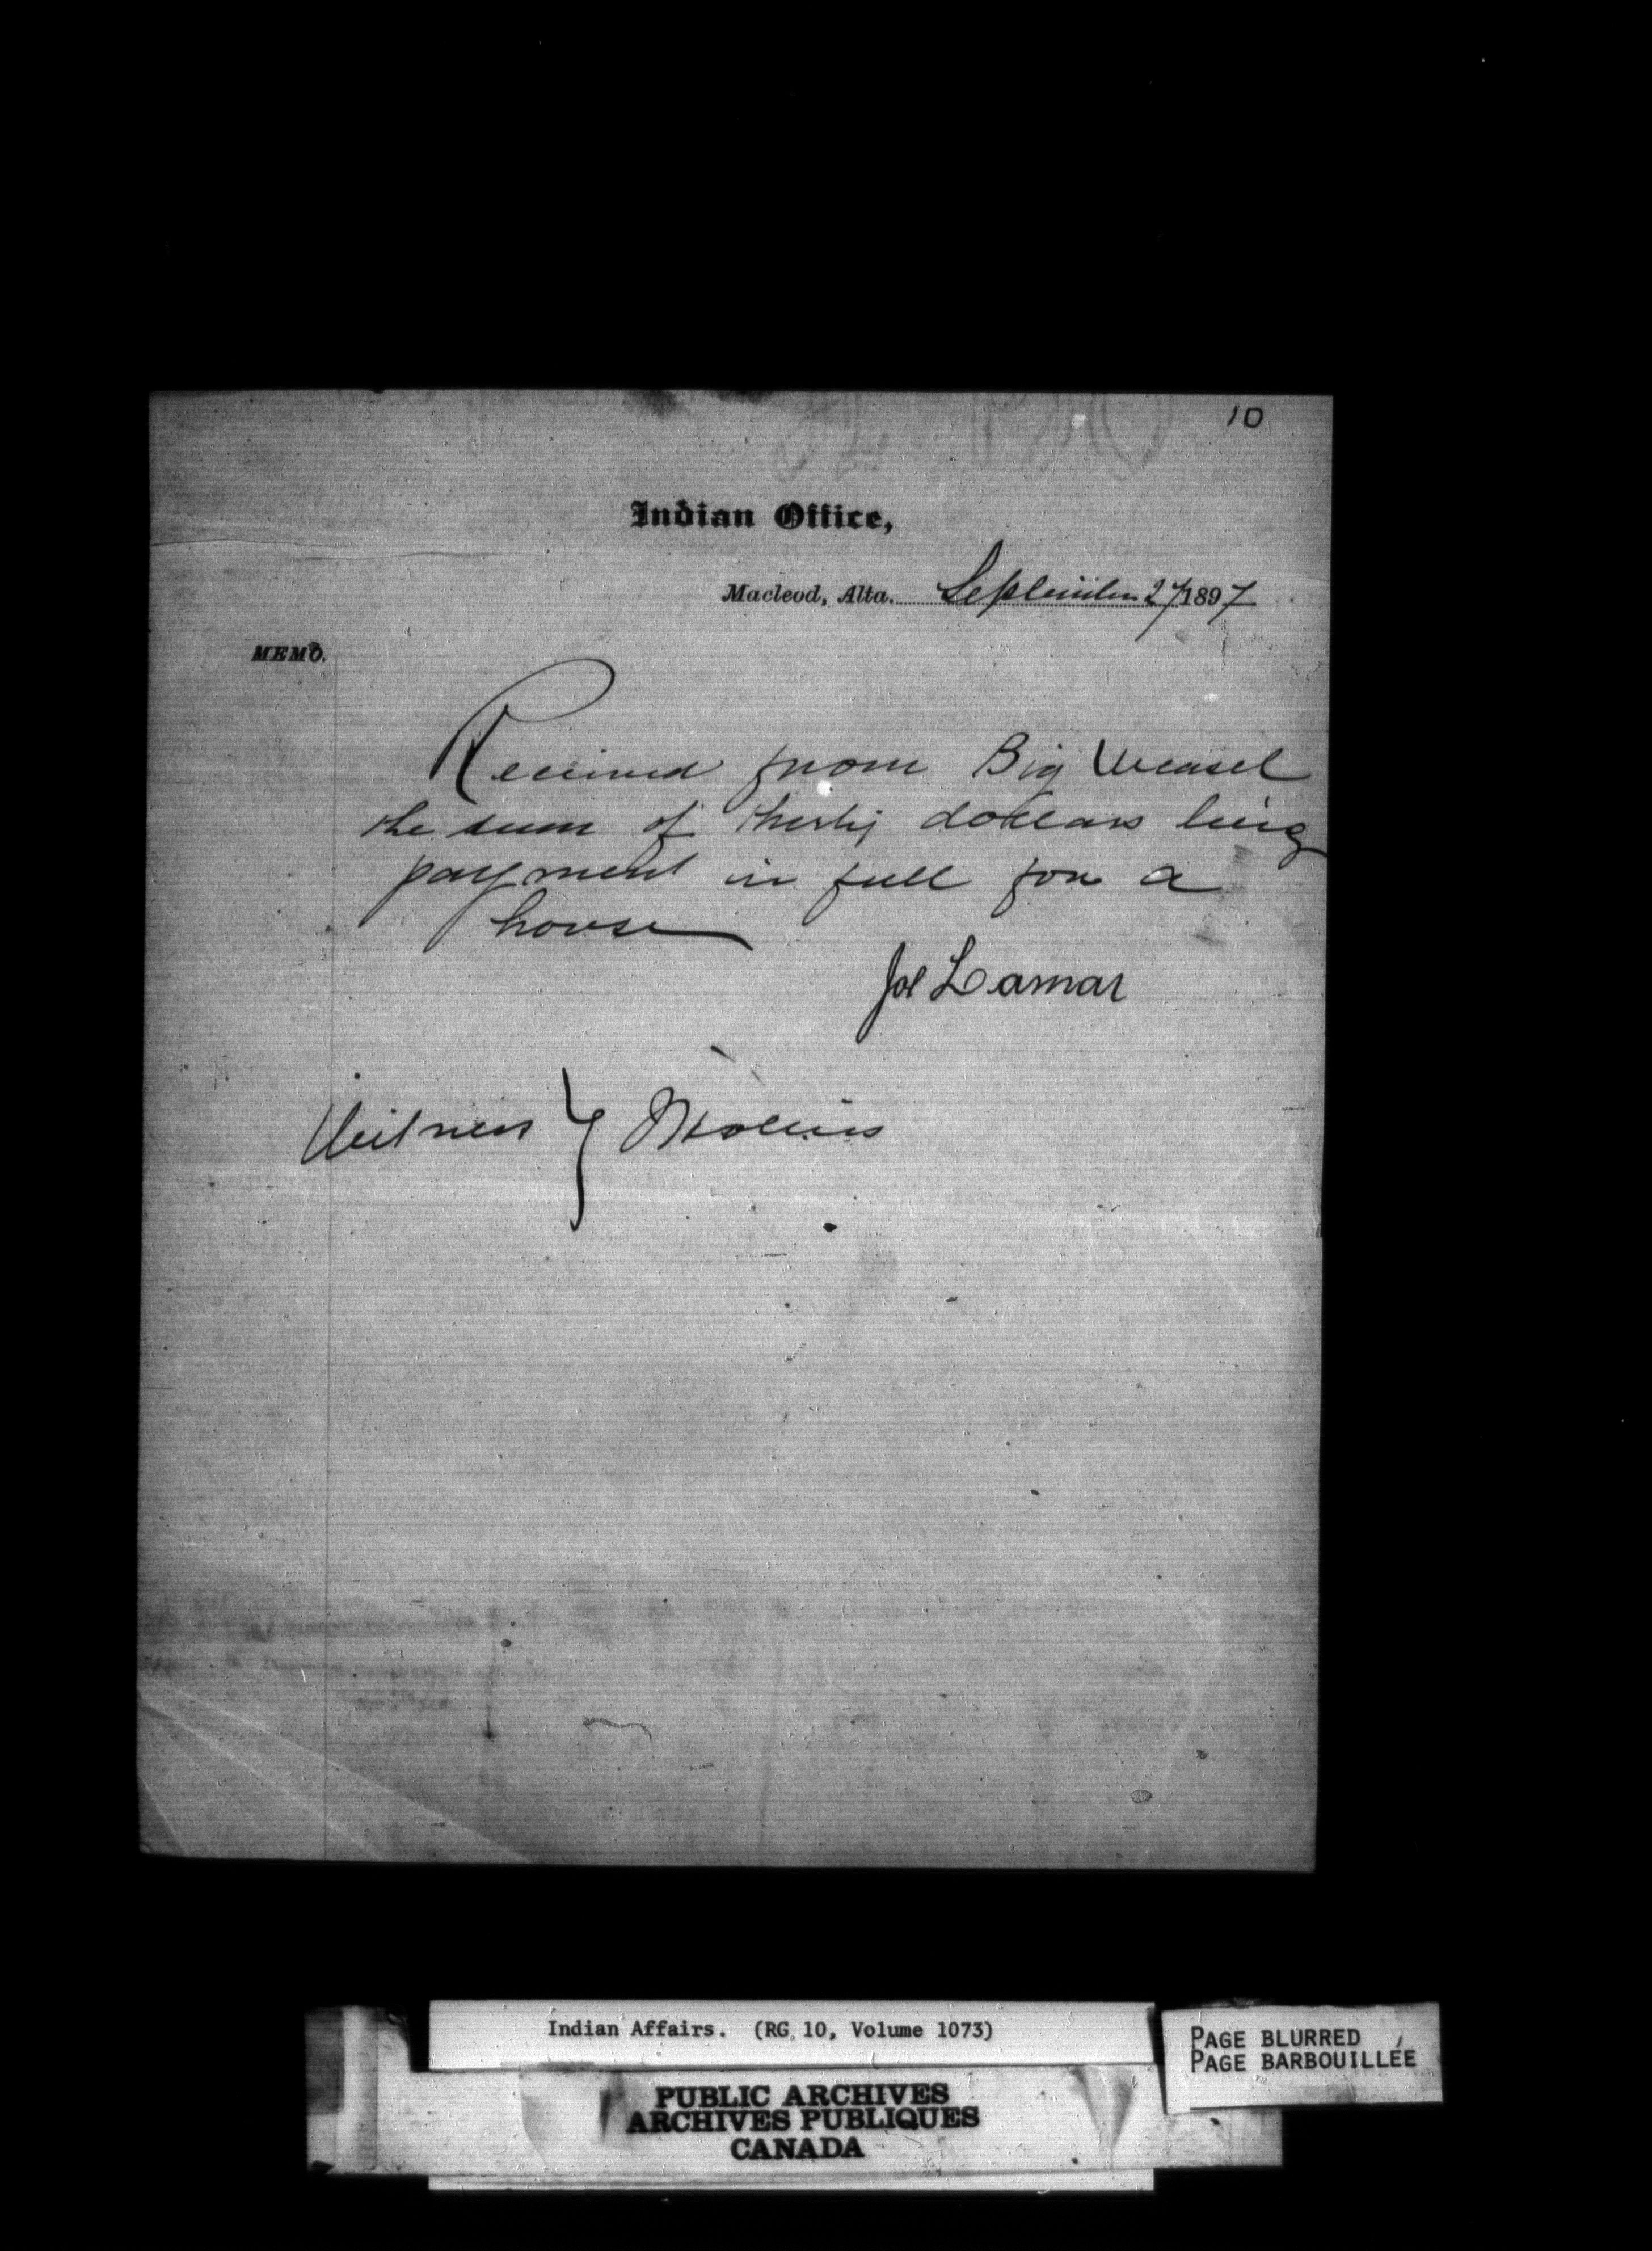 10
Indian Office,
Macleod, Alta. September 27 1897
MEMO.
Received from Big Weasel
the sum of thirty dollars being
payment in full for a
house
Joe Lamar
Witness }
Indian Affairs. (RG 10, Volume 1073)
PAGE BLURRED
PAGE BARBOUILLÉE
PUBLIC ARCHIVES
ARCHIVES PUBLIQUES
CANADA